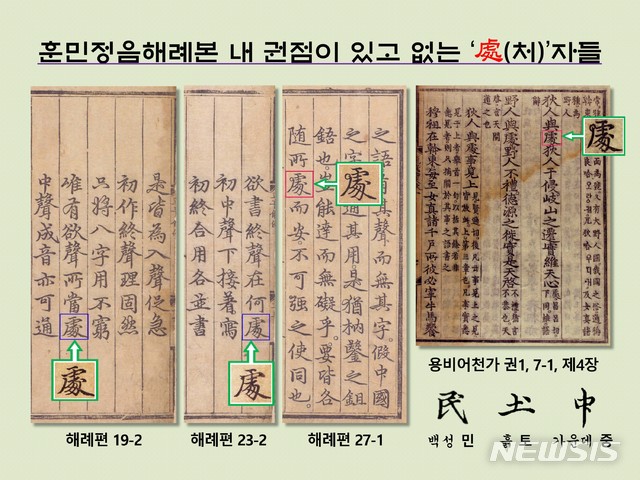 훈민정음해례본 내 권점이 있고 없는 ‘處(처)’자들
是皆為入聲促急
初作終聲理固然
只將八字用不窮
唯有欲聲所當處
中聲成音亦可通
處
해례편 19-2
欲書終聲在何處
初中聲下接着寫
初終合用各並書
處
해례편 23-2
之語有其聲而無其字。假中國
之字通其用。是猶枘鑿之鉏
鋙也。豈能達而無礙乎。要皆各
随所處而安。不可强之使同也。
處
해례편 27-1
狄人與處狄人于侵岐山之遷實維天心
野人與處野人不禮德源之徙實是天啓
狄人與處事見上
穆祖在幹東每至女真諸千戶所彼必宰牛馬饗
處
용비어천가 권1, 7-1, 제4장
民 土 中
백성 민 흙 토 가운데 중
NEWSIS